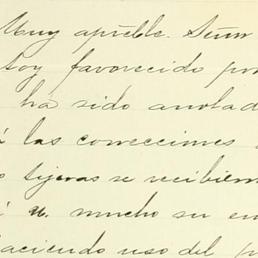 Muy apréble. Señor
soy favorecido por
ha sido anotad
las correcciones
tijeras se recibien
á u. mucho su en
aciendo uso del p